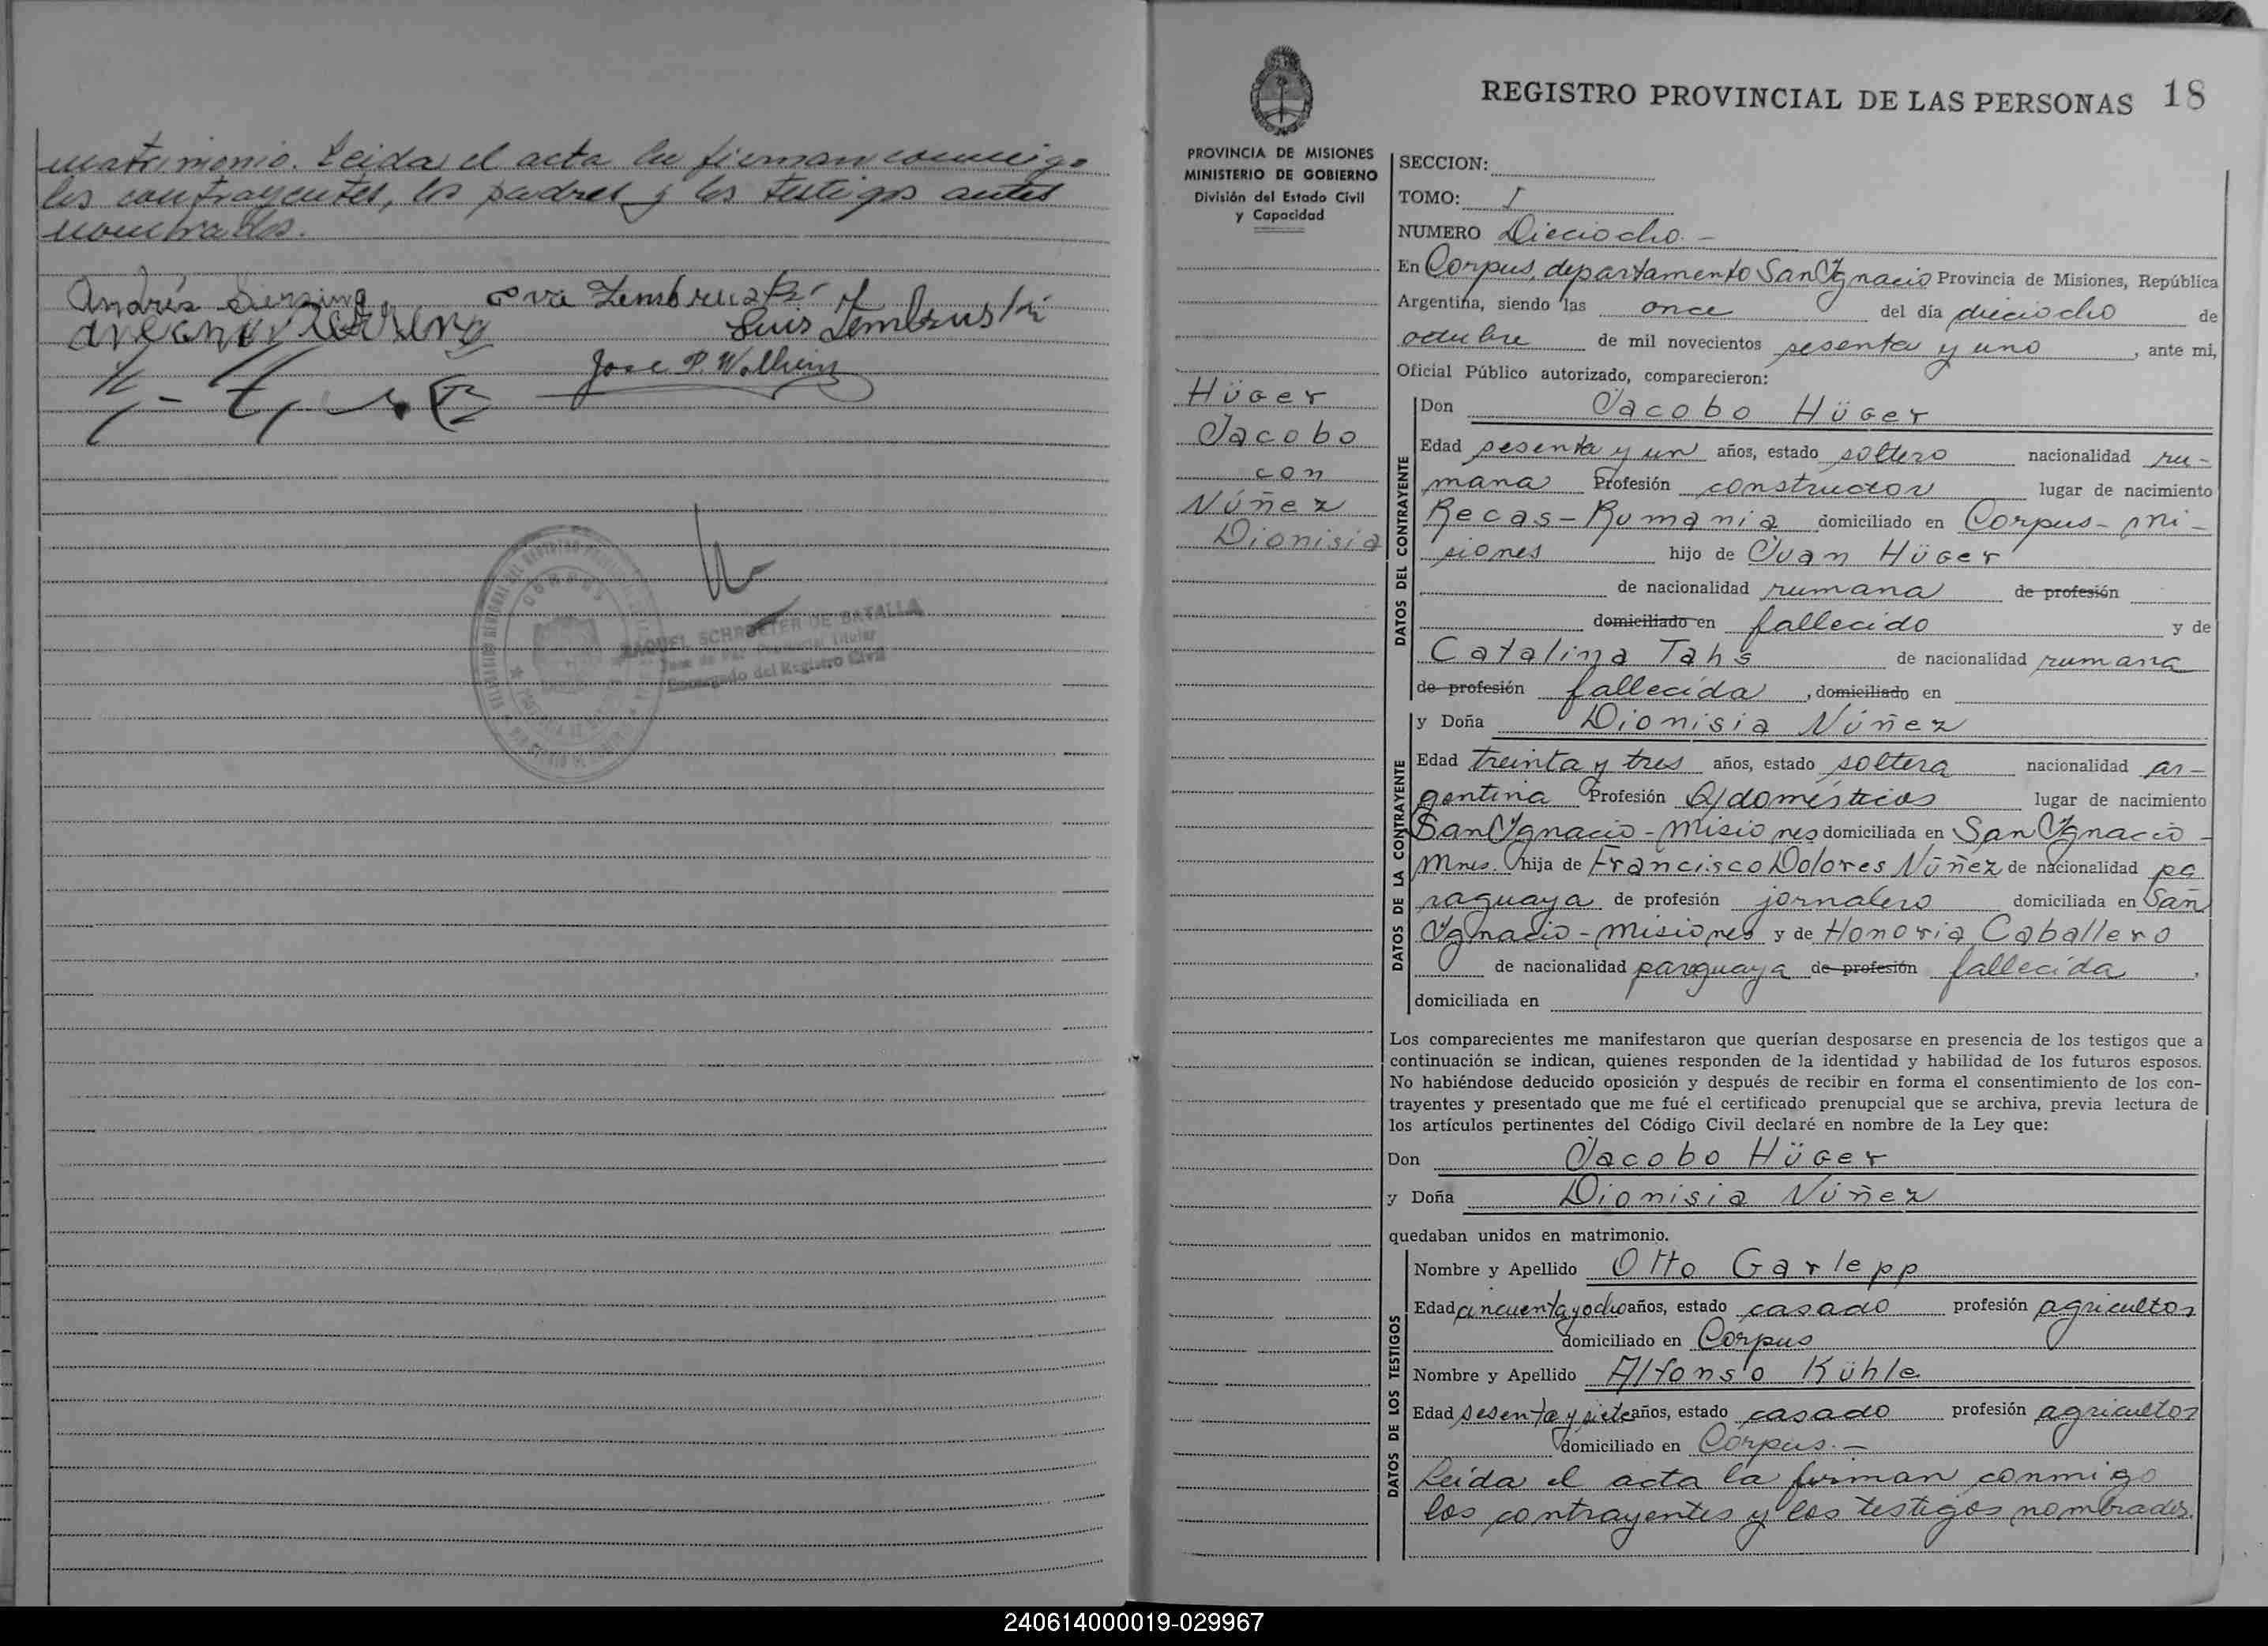 matrimonio. Leida el acta la firman conmigo
los contrayentes, los padres y los testigos antes
nombrados.
Andrés
Eva Zembruski
Luis Zembruski
Jose P.
CORPUS
RAQUEL SCHROETER DE BATALLA
Juez de Paz Titular
Encargado del Registro Civil
REGISTRO PROVINCIAL DE LAS PERSONAS 18
PROVINCIA DE MISIONES
MINISTERIO DE GOBIERNO
División del Estado Civil
y Capacidad
Hüger
Jacobo
con
Núñez
Dionisia
SECCION:
TOMO: I
NUMERO Dieciocho.-
En Corpus, departamento San Ignacio Provincia de Misiones, República
Argentina, siendo las once del día dieciocho de
octubre de mil novecientos sesenta y uno, ante mi,
Oficial Público autorizado, comparecieron:
DATOS DEL CONTRAYENTE
Don Jacobo Hüger
Edad sesenta y un años, estado soltero nacionalidad ru-
mana Profesión constructor lugar de nacimiento
Recas-Rumania domiciliado en Corpus-Mi-
siones hijo de Juan Hüger
de nacionalidad rumana de profesión
domiciliado en fallecido y de
Catalina Tahs de nacionalidad rumana
de profesión fallecida, domiciliado en
DATOS DE LA CONTRAYENTE
y Doña Dionisia Núñez
Edad treinta y tres años, estado soltera nacionalidad ar-
gentina Profesión Q/domésticos lugar de nacimiento
San Ignacio-Misiones domiciliada en San Ignacio-
Mnes. hija de Francisco Dolores Núñez de nacionalidad pa
raguaya de profesión jornalero domiciliada en San
Ignacio-Misiones y de Honoria Caballero
de nacionalidad paraguaya de profesión fallecida,
domiciliada en
Los comparecientes me manifestaron que querían desposarse en presencia de los testigos que a
continuación se indican, quienes responden de la identidad y habilidad de los futuros esposos.
No habiéndose deducido oposición y después de recibir en forma el consentimiento de los con-
trayentes y presentado que me fué el certificado prenupcial que se archiva, previa lectura de
los artículos pertinentes del Código Civil declaré en nombre de la Ley que:
Don Jacobo Hüger
y Doña Dionisia Núñez
quedaban unidos en matrimonio.
DATOS DE LOS TESTIGOS
Nombre y Apellido Otto Garlepp
Edad cincuenta y ocho años, estado casado profesión agricultor
domiciliado en Corpus
Nombre y Apellido Alfonso Kühle
Edad sesenta y siete años, estado casado profesión agricultor
domiciliado en Corpus.-
Leída el acta la firman conmigo
los contrayentes y los testigos nombrados.
240614000019-029967